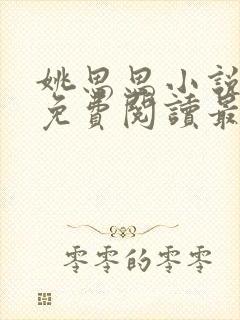 姚思思小說
免費閱讀最
零零的零零